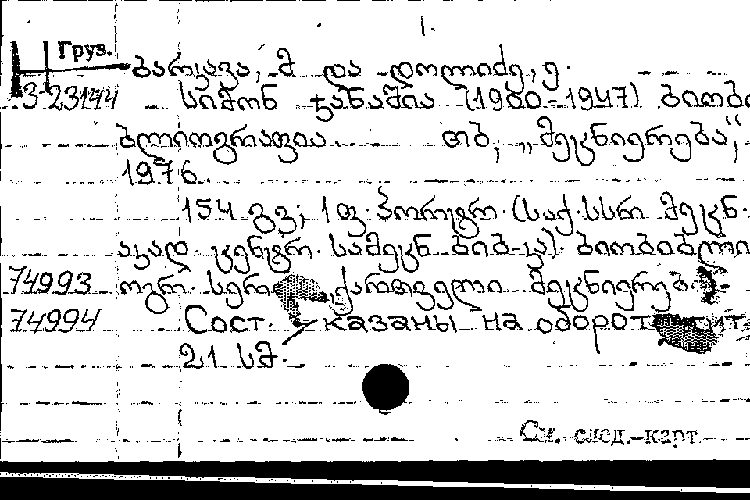 1.
Груз.
ბარკავა, მ და დოლიძე, ე.
3-23144 სიმონ ჯანაშია (1900-1947) ბიობი
ბლიოგრაფია. თბ, „მეცნიერება“,
1976.
154 გვ; 1 ფ. პორტრ. (საქ. სსრ მეცნ.
აკად. ცენტრ. სამეცნ ბიბ-კა). ბიობიბლი
74993 ოგრ. სერ ქართველი მეცნიერებ
74994 Сост. указаны на оборот тит.
21 სმ.
См. след. карт